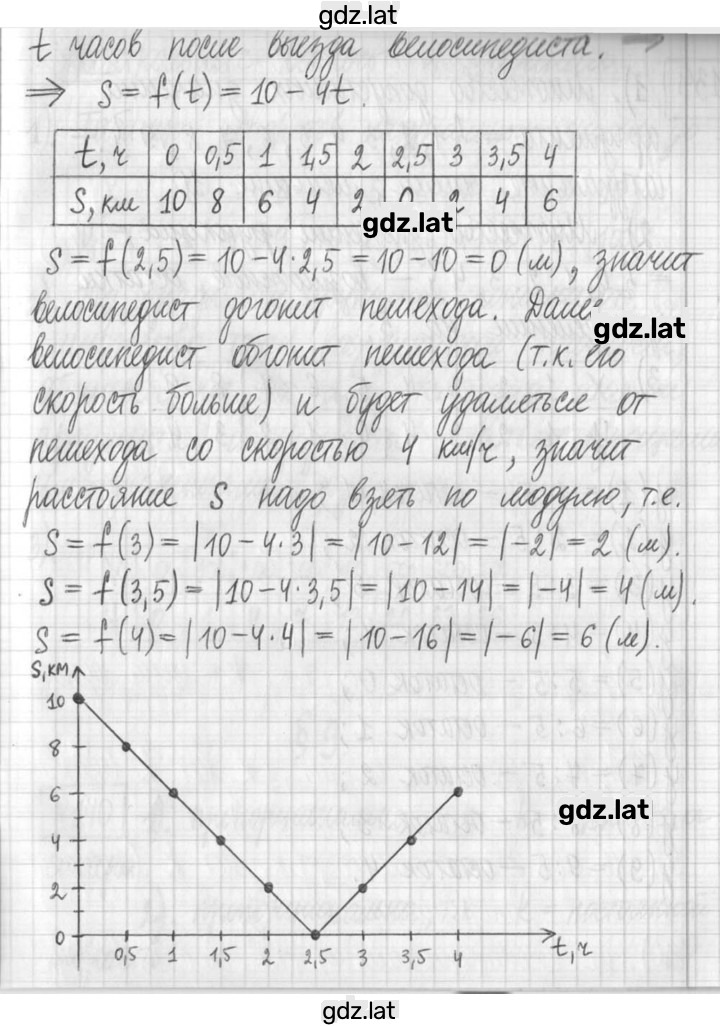 gdz.lat
t часов после выезда велосипедиста. ⇒
⇒ S = f(t) = 10 − 4t.
t, ч 0 0,5 1 1,5 2 2,5 3 3,5 4
S, км 10 8 6 4 2 0 2 4 6
gdz.lat
S = f(2,5) = 10 − 4·2,5 = 10 − 10 = 0 (м), значит
велосипедист догонит пешехода. Далее
gdz.lat
велосипедист обгонит пешехода (т.к. его
скорость больше) и будет удаляться от
пешехода со скоростью 4 км/ч, значит
расстояние S надо взять по модулю, т.е.
S = f(3) = |10 − 4·3| = |10 − 12| = |−2| = 2 (м).
S = f(3,5) = |10 − 4·3,5| = |10 − 14| = |−4| = 4 (м).
S = f(4) = |10 − 4·4| = |10 − 16| = |−6| = 6 (м).
S, км
10
8
6
gdz.lat
4
2
0
0,5 1 1,5 2 2,5 3 3,5 4 t, ч
gdz.lat